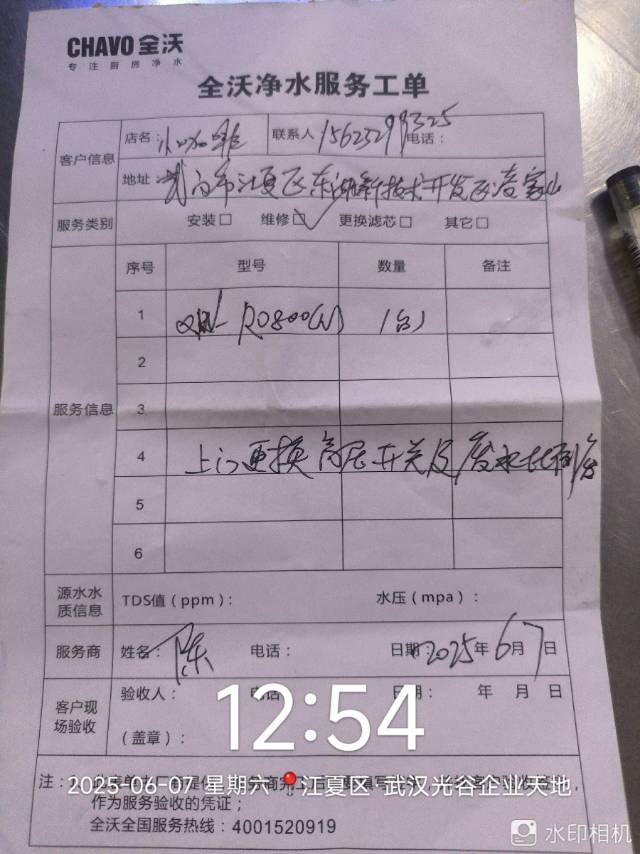 CHAVO 全沃
专注厨房净水
全沃净水服务工单
客户信息
店名: 联系人 电话:
地址: 武汉市江夏区东湖新技术开发区
服务类别 安装□ 维修☑ 更换滤芯□ 其它□
服务信息
序号 型号 数量 备注
1 RO800(N) 1台
2
3
4 上门更换高压开关及废水比例
5
6
源水水质信息 TDS值(ppm): 水压(mpa):
服务商 姓名: 陈 电话: 日期: 2025年6月7日
客户现场验收
验收人: 电话: 日期: 年 月 日
(盖章):
12:54
2025-06-07 星期六 江夏区·武汉光谷企业天地
注:
作为服务验收的凭证;
全沃全国服务热线: 4001520919
水印相机